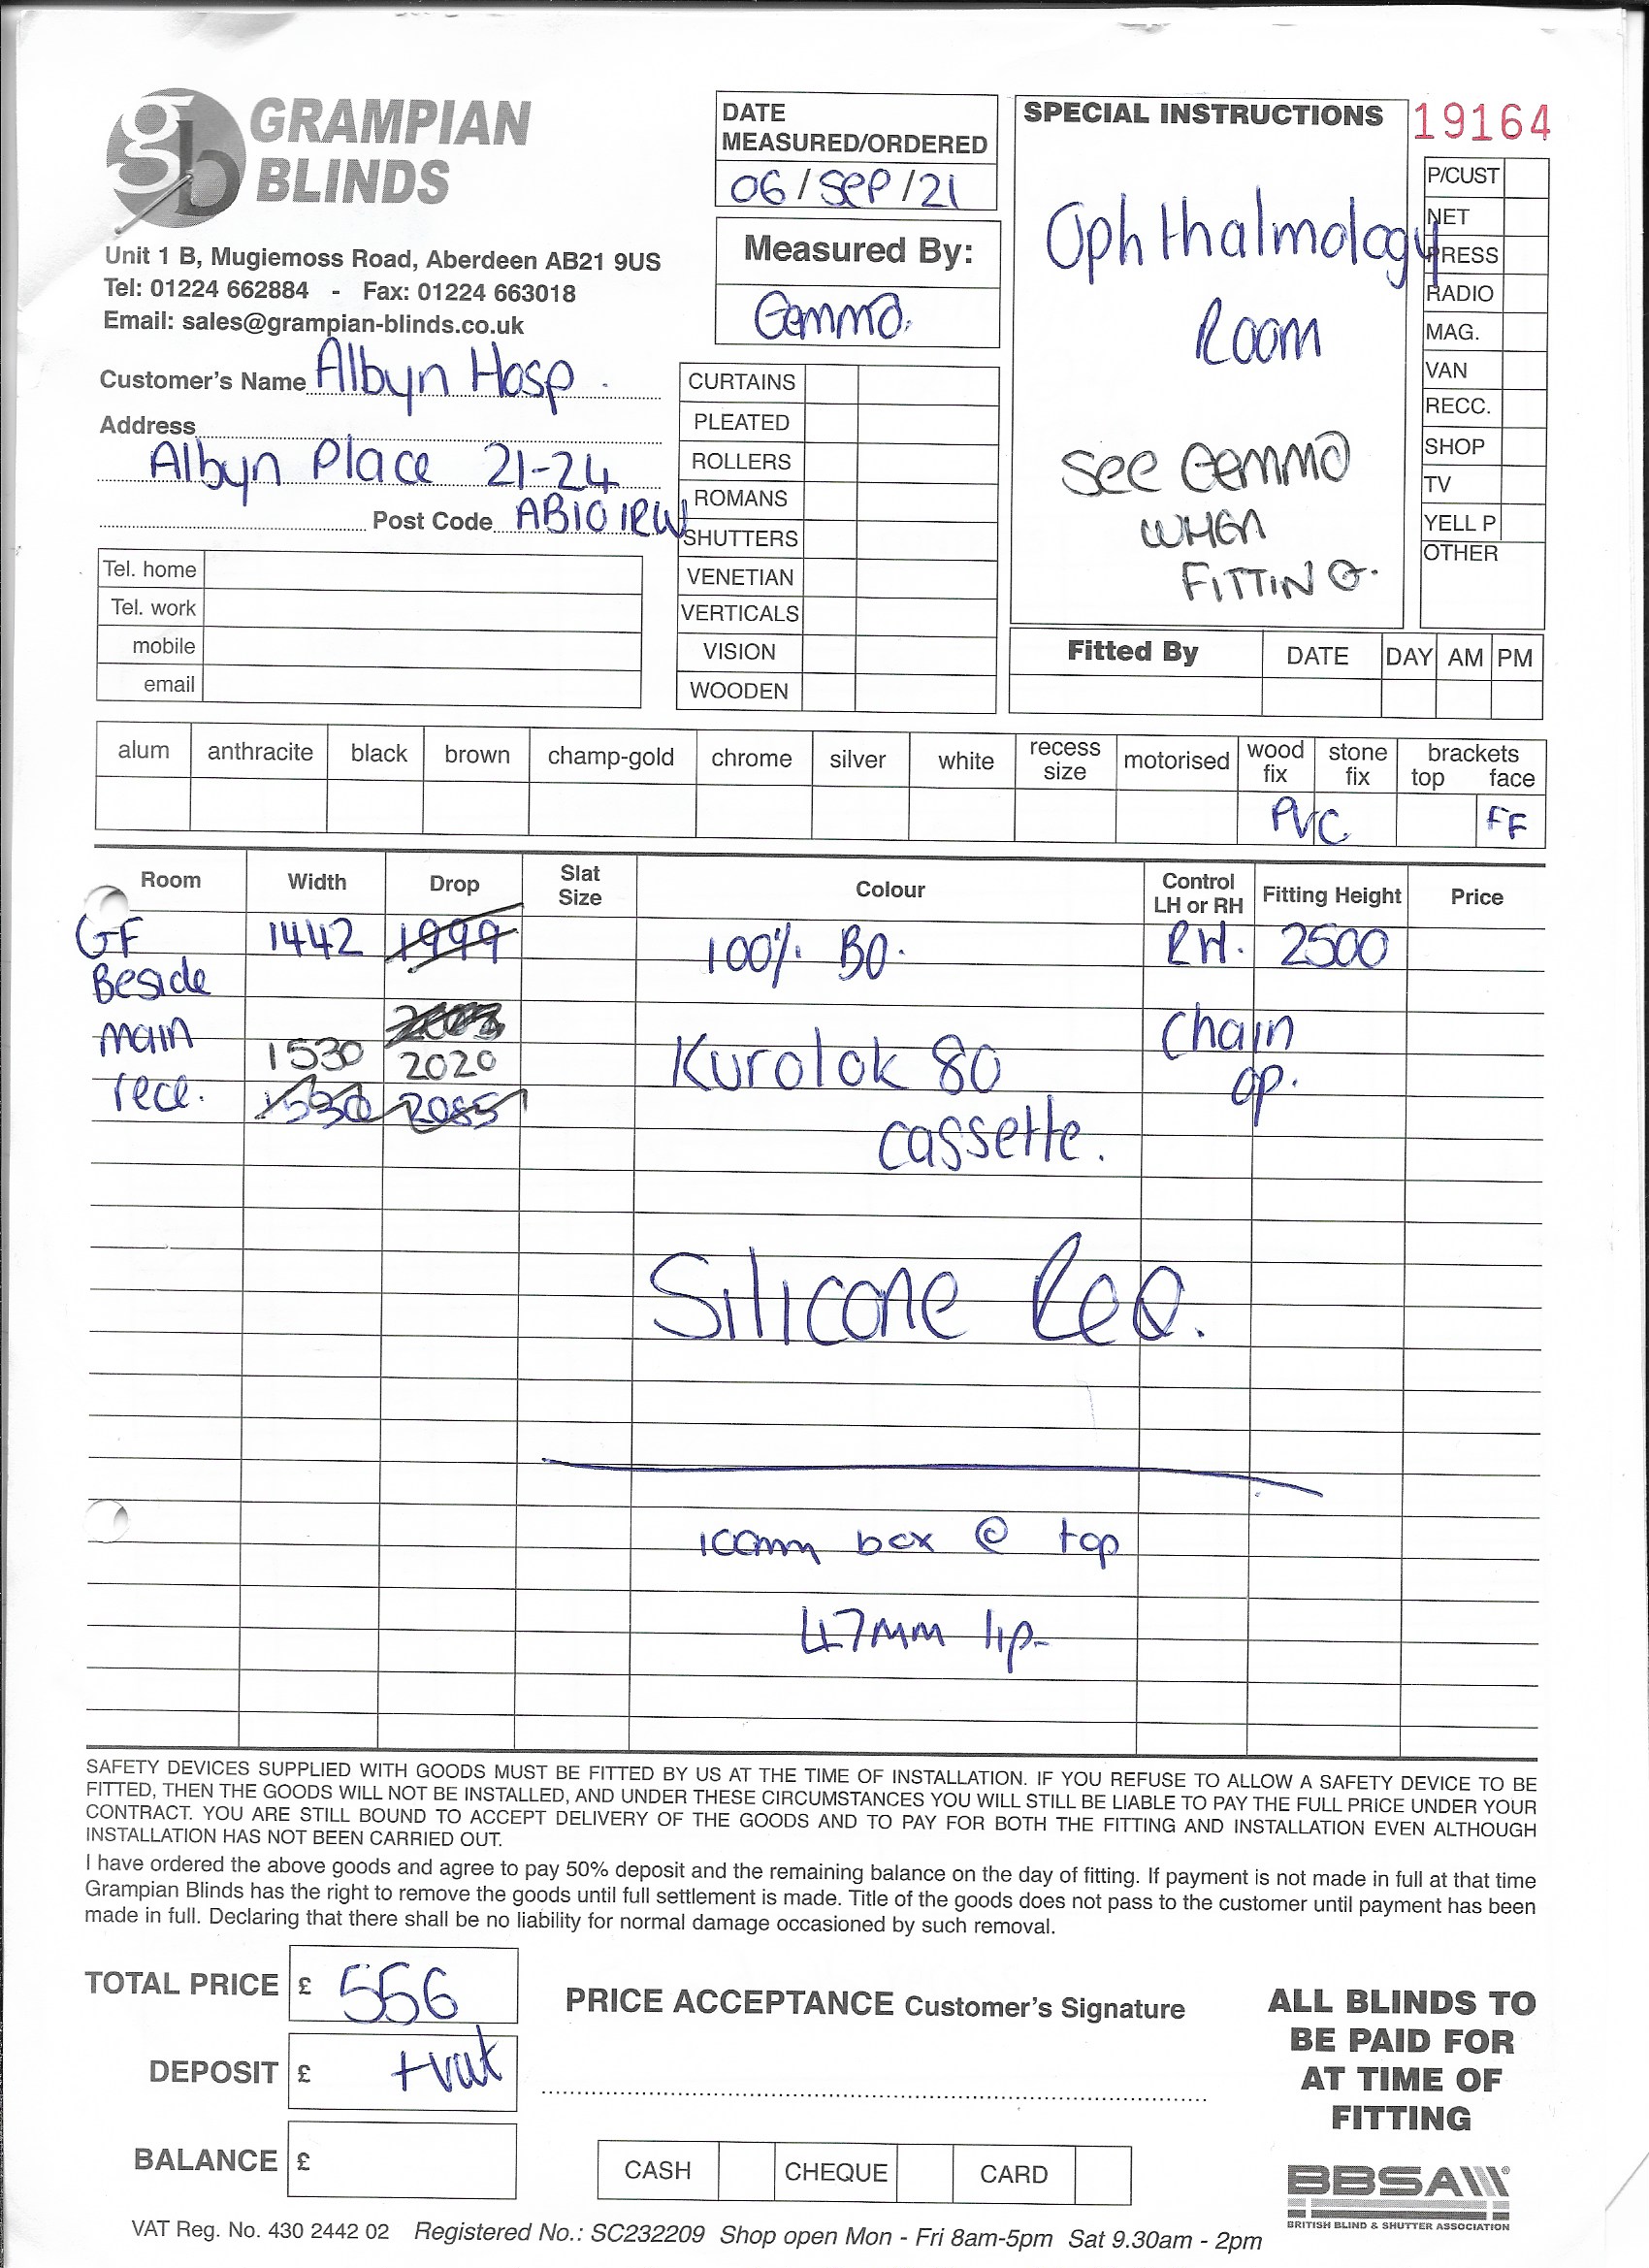 GRAMPIAN
BLINDS
Unit 1 B, Mugiemoss Road, Aberdeen AB21 9US
Tel: 01224 662884 - Fax: 01224 663018
Email: sales@grampian-blinds.co.uk
Customer's Name Albyn Hosp.
Address
Albyn Place 21-24
Post Code AB10 1RW
Tel. home
Tel. work
mobile
email
DATE
MEASURED/ORDERED
06/SEP/21
Measured By:
Gemma.
CURTAINS
PLEATED
ROLLERS
ROMANS
SHUTTERS
VENETIAN
VERTICALS
VISION
WOODEN
SPECIAL INSTRUCTIONS
Ophthalmology
Room
See Gemma
WHEN
FITTING.
19164
P/CUST
NET
PRESS
RADIO
MAG.
VAN
RECC.
SHOP
TV
YELL P
OTHER
Fitted By DATE DAY AM PM
alum anthracite black brown champ-gold chrome silver white recess size motorised wood fix stone fix brackets top face
PVC FF
Room Width Drop Slat Size Colour Control LH or RH Fitting Height Price
GF 1442 1999 100% BO. RH. 2500
Beside
main 1530 2020 Kurolok 80 Chain
rece. 1530 2085 cassette. op.
Silicone Req.
100mm box @ top
47mm lip-
SAFETY DEVICES SUPPLIED WITH GOODS MUST BE FITTED BY US AT THE TIME OF INSTALLATION. IF YOU REFUSE TO ALLOW A SAFETY DEVICE TO BE
FITTED, THEN THE GOODS WILL NOT BE INSTALLED, AND UNDER THESE CIRCUMSTANCES YOU WILL STILL BE LIABLE TO PAY THE FULL PRICE UNDER YOUR
CONTRACT. YOU ARE STILL BOUND TO ACCEPT DELIVERY OF THE GOODS AND TO PAY FOR BOTH THE FITTING AND INSTALLATION EVEN ALTHOUGH
INSTALLATION HAS NOT BEEN CARRIED OUT.
I have ordered the above goods and agree to pay 50% deposit and the remaining balance on the day of fitting. If payment is not made in full at that time
Grampian Blinds has the right to remove the goods until full settlement is made. Title of the goods does not pass to the customer until payment has been
made in full. Declaring that there shall be no liability for normal damage occasioned by such removal.
TOTAL PRICE £ 556
DEPOSIT £ +vat
BALANCE £
PRICE ACCEPTANCE Customer's Signature
CASH CHEQUE CARD
ALL BLINDS TO
BE PAID FOR
AT TIME OF
FITTING
BBSA
BRITISH BLIND & SHUTTER ASSOCIATION
VAT Reg. No. 430 2442 02 Registered No.: SC232209 Shop open Mon - Fri 8am-5pm Sat 9.30am - 2pm